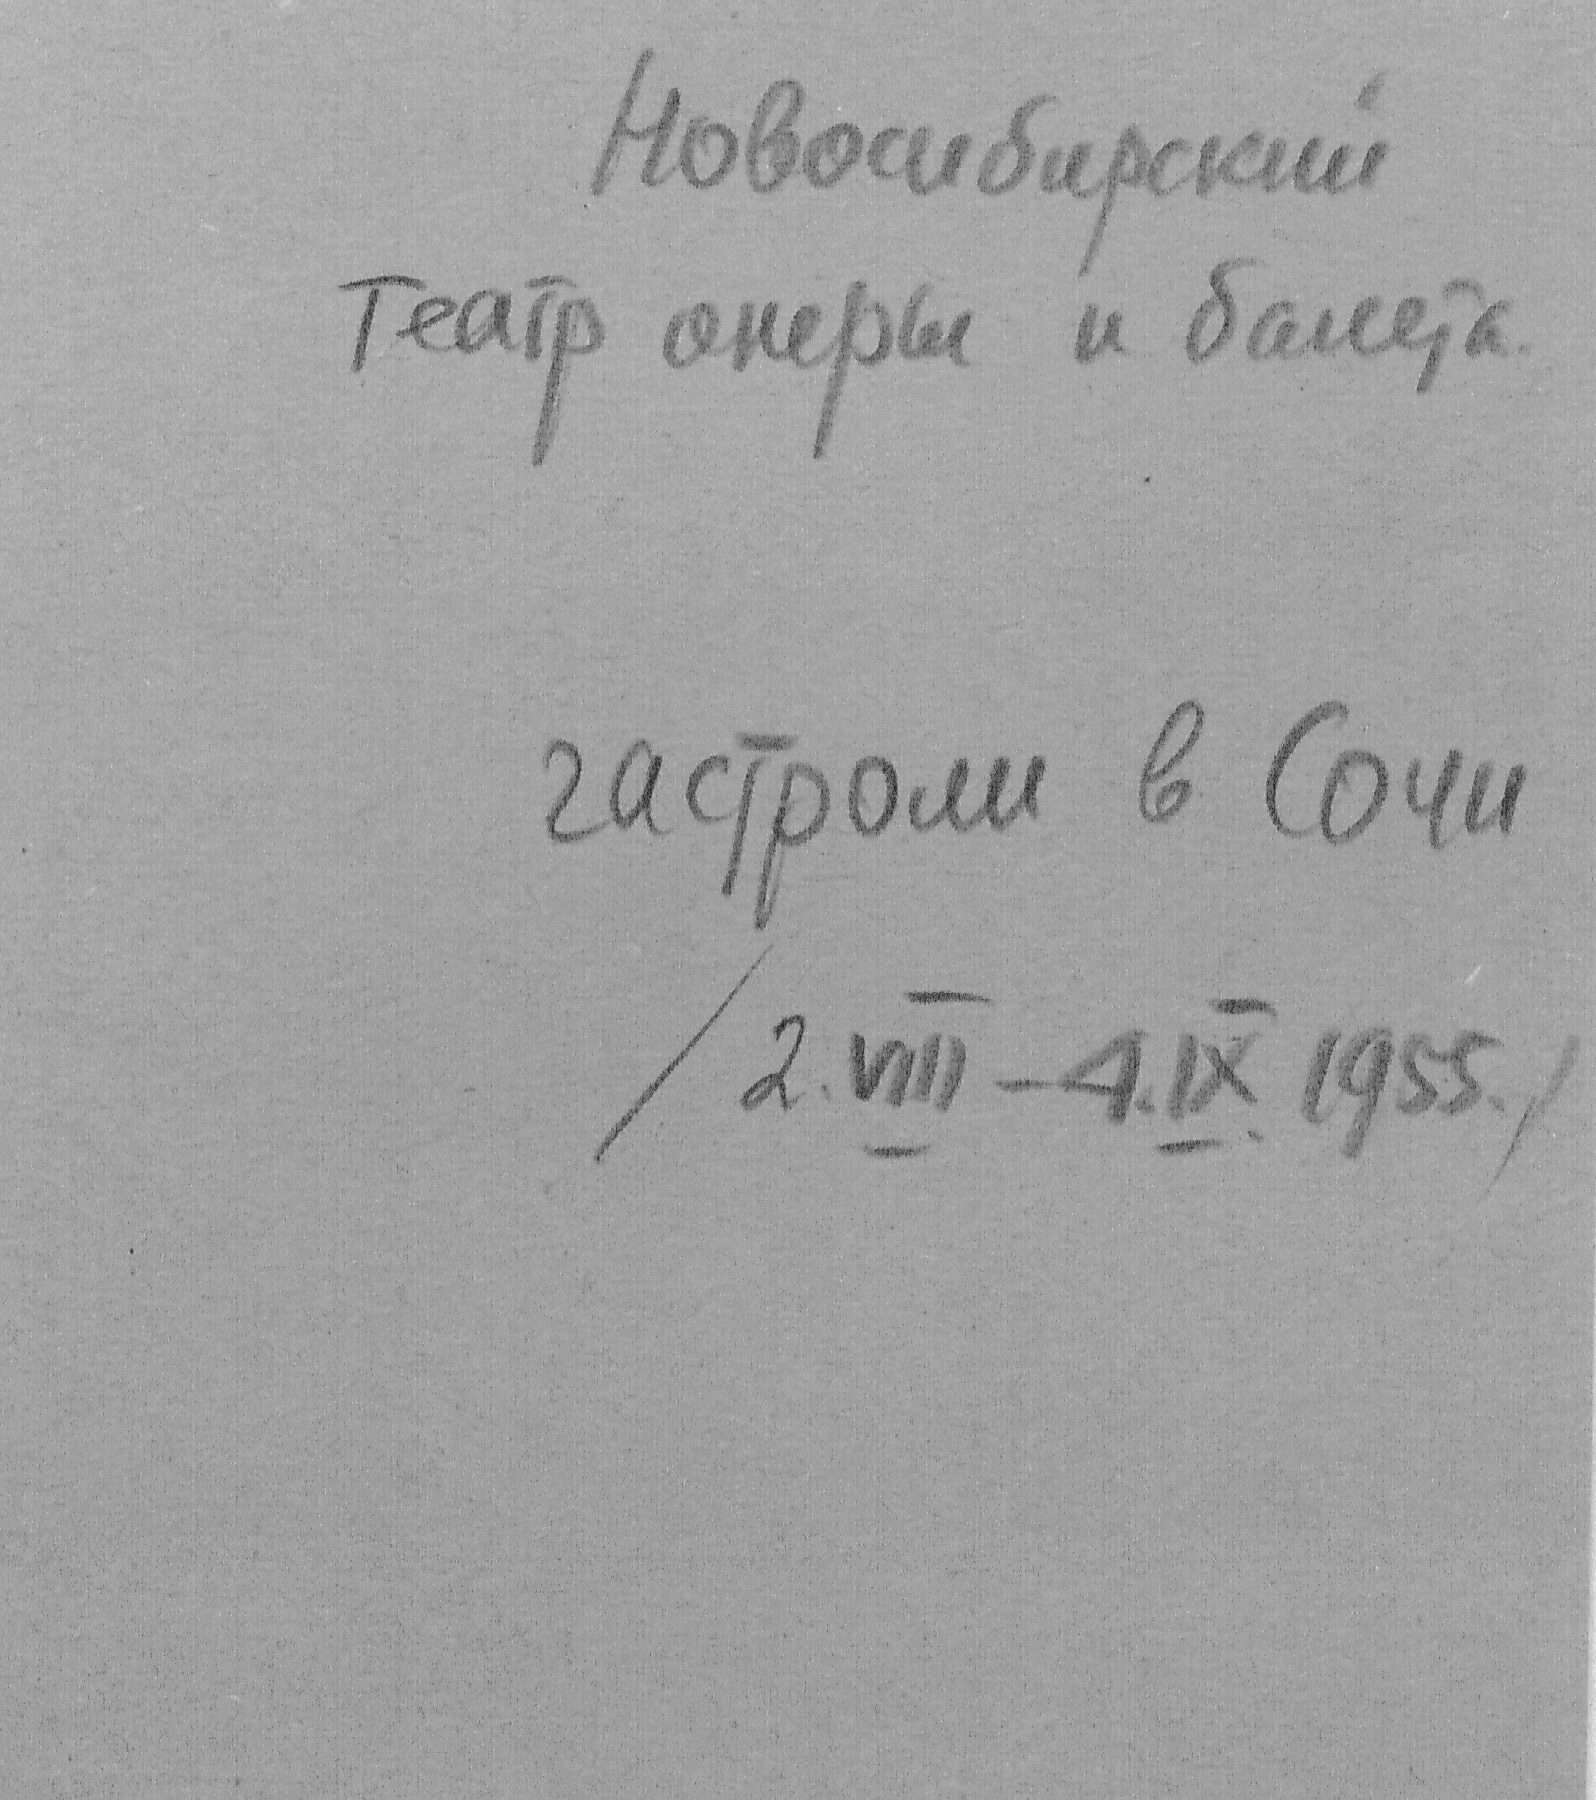 Новосибирский
Театр оперы и балета.
гастроли в Сочи
/2.VIII – 4.IX 1955./